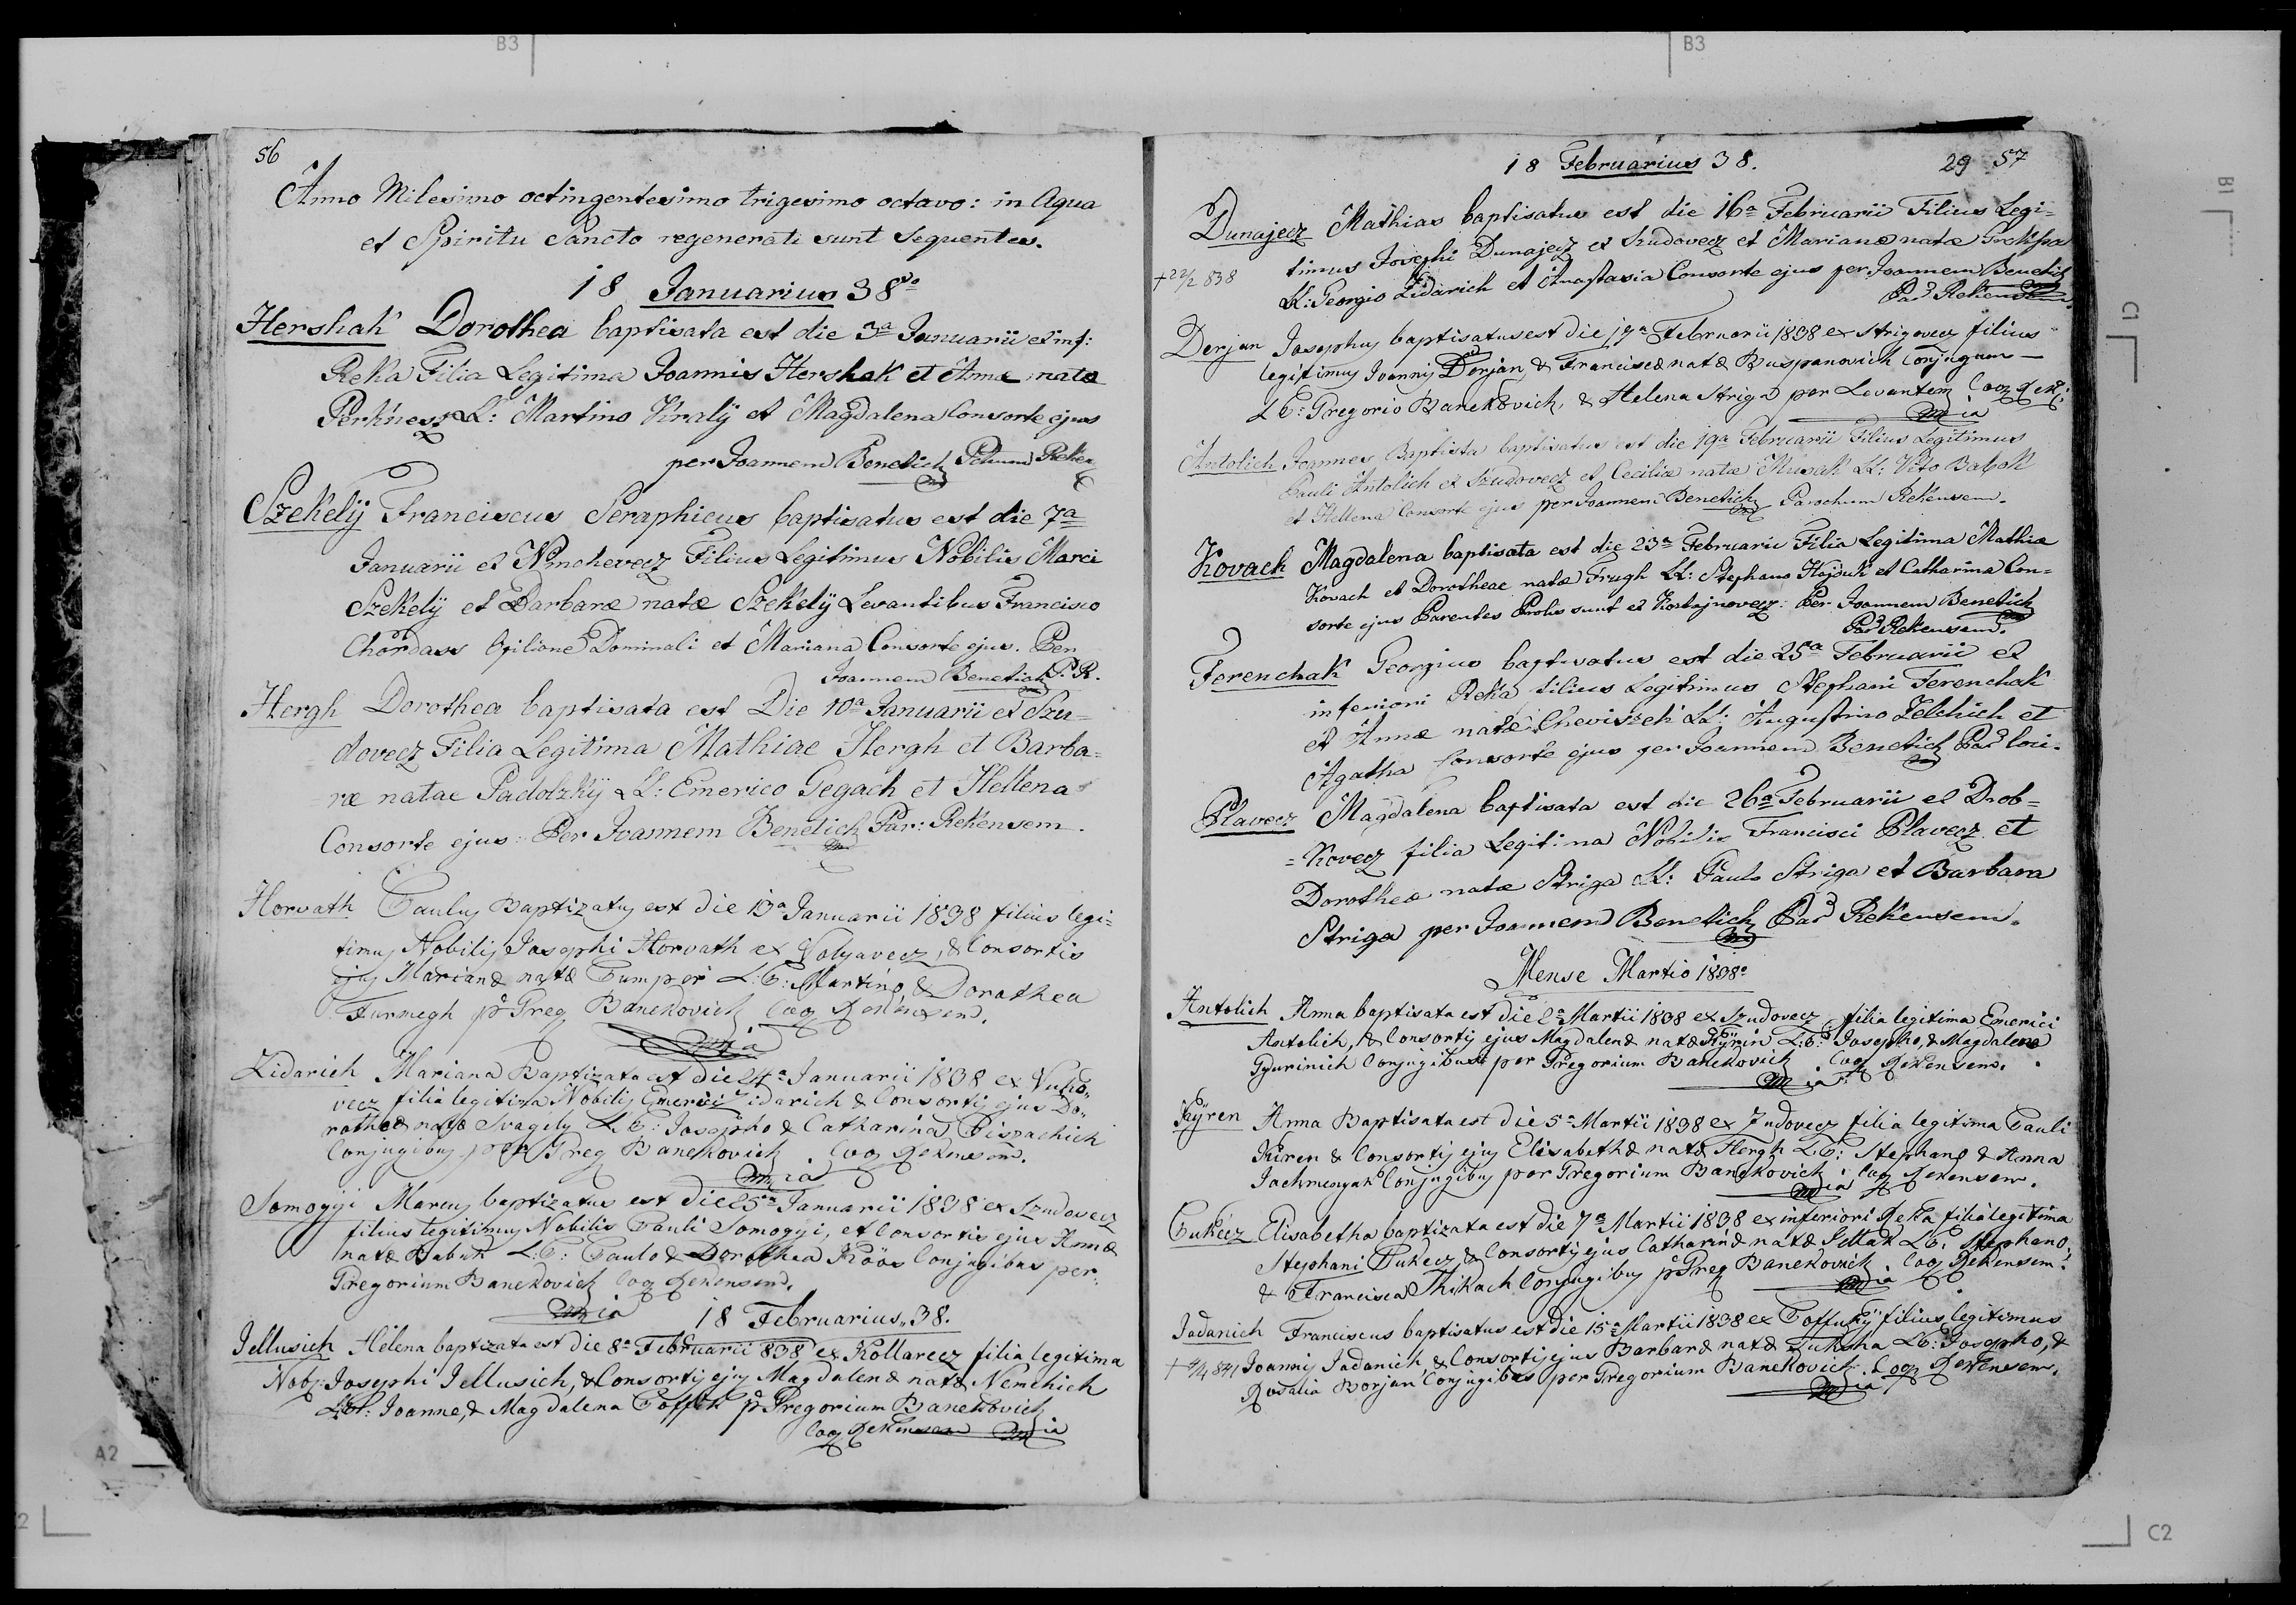 B3
B3
B1
C1
A2
2
C2
56
Anno Milesimo octingentesimo trigesimo octavo: in Aqua
et Spiritu Sancto regenerati sunt Sequentes.
18 Januarius 38vo
Hershak Dorothea baptisata est die 3a Januarii ex inf:
Reka Filia Legitima Joannis Hershak et Annæ natæ
Perknesz LL: Martino Kralÿ et Magdalena Consorte ejus
per Joannem Benetich
Szekelÿ Franciscus Seraphicus baptisatus est die 7a
Januarii ex Nimchevecz Filius Legitimus Nobilis Marci
Szekelÿ et Barbaræ natæ Szekelÿ Levantibus Francisco
Chordass Opilione Dominali et Mariana Consorte ejus. Per
Joannem Benetich P. R.
Hergh Dorothea baptisata est Die 10a Januarii ex Szu=
dovecz Filia Legitima Mathiae Hergh et Barba=
ræ natae Padolzkÿ LL: Emerico Gegach et Hellena
Consorte ejus. Per Joannem Benetich Par: Rekensem.
Horvath Paulus Baptizatus est die 13a Januarii 1838 filius legi-
timus Nobilis Josephi Horvath ex Volyavecz, & Consortis
ejus Marianæ natæ Tumper L.C: Martino & Dorothea
Furmegh p Greg Banekovich Coop Rekensem.
Zidarich Mariana Baptizata est die 24a Januarii 1838 ex Vuko-
vecz filia legitima Nobilis Emerici Zidarich & Consortis ejus Do-
rotheæ natæ Svagely L.C: Josepho & Catharina Pispachich
Conjugibus per Greg Banekovich Coop Rekensem.
Somogyi Marcus baptizatus est die 25a Januarii 1838 ex Szudovecz
filius legitimus Nobilis Pauli Somogyi, et Consortis ejus Annæ
natæ Babuk L.C: Paulo & Dorothea Köös Conjugibus per
Gregorium Banekovich Coop Rekensem.
18 Februarius 38.
Jellusich Helena baptizata est die 8a Februarii 838 ex Kollarecz filia legitima
Nob: Josephi Jellusich, & Consortis ejus Magdalenæ natæ Nemchich
Joanne, & Magdalena p Gregorium Banekovich
Coop Rekensem
18 Februarius 38. 29 57
Dunajecz Mathias baptisatus est die 16a Februarii Filius Legi=
timus Josephi Dunajecz ex Szudovecz et Marianæ natæ
+22/2 838 LL: Georgio Zidarich et Anastasia Consorte ejus per Joannem Benetich
Par Rekensem
Derjan Josephus baptisatus est die 17a Februarii 1838 ex Strigovecz filius
legitimus Joannis Derjan, & Franciscæ natæ Buspanovich Conjugum
L.C: Gregorio Banekovich, & Helena Striga per Levantem Coop Rek:
Antolich Joannes Baptista baptisatus est die 19a Februarii Filius Legitimus
Pauli Antolich ex Szudovecz et Ceciliæ natæ Musak LL: Vito Babok
et Hellena Consorte ejus per Joannem Benetich Parochum Rekensem.
Kovach Magdalena baptisata est die 23a Februarii Filia Legitima Mathiæ
Kovach et Dorotheae natæ Frugh LL: Stephano Hajduk et Catharina Con=
sorte ejus Parentes Prolis sunt ex Kostajnovecz: Per Joannem Benetich
Par Rekensem.
Ferenchak Georgius baptisatus est die 25a Februarii ex
inferiori Reka Filius Legitimus Stephani Ferenchak
et Annæ natæ Cheviszek LL: Augustino Zelchich et
Agatha Consorte ejus per Joannem Benetich Par loci.
Plavecz Magdalena baptisata est die 26a Februarii ex Drob=
=kovecz filia Legitima Nobilis Francisci Plavecz et
Dorotheæ natæ Striga LL: Paulo Striga et Barbara
Striga per Joannem Benetich Par Rekensem.
Mense Martio 1838
Antolich Anna baptisata est die 2a Martii 1838 ex Szudovecz filia legitima Emerici
Antolich, & Consortis ejus Magdalenæ natæ L.C: Josepho, & Magdalena
Gyurinich Conjugibus per Gregorium Banekovich Coop Rekensem.
Anna Baptisata est die 5a Martii 1838 ex Zudovecz filia legitima Pauli
Küren & Consortis ejus Elisabethæ natæ Hergh L.C: Stephano & Anna
Jachmenyak Conjugibus per Gregorium Banekovich Coop Rekensem.
Elisabetha baptizata est die 7a Martii 1838 ex inferiori Reka filia legitima
Stephani & Consortis ejus Catharinæ natæ L.C: Stephano,
& Francisca Conjugibus p Greg Banekovich Coop Rekensem.
Jadanich Franciscus baptisatus est die 15a Martii 1838 ex filius legitimus
Joannis Jadanich & Consortis ejus Barbaræ natæ Luksha L.C: Josepho, &
Rosalia Borjan Conjugibus per Gregorium Banekovich Coop Rekensem.